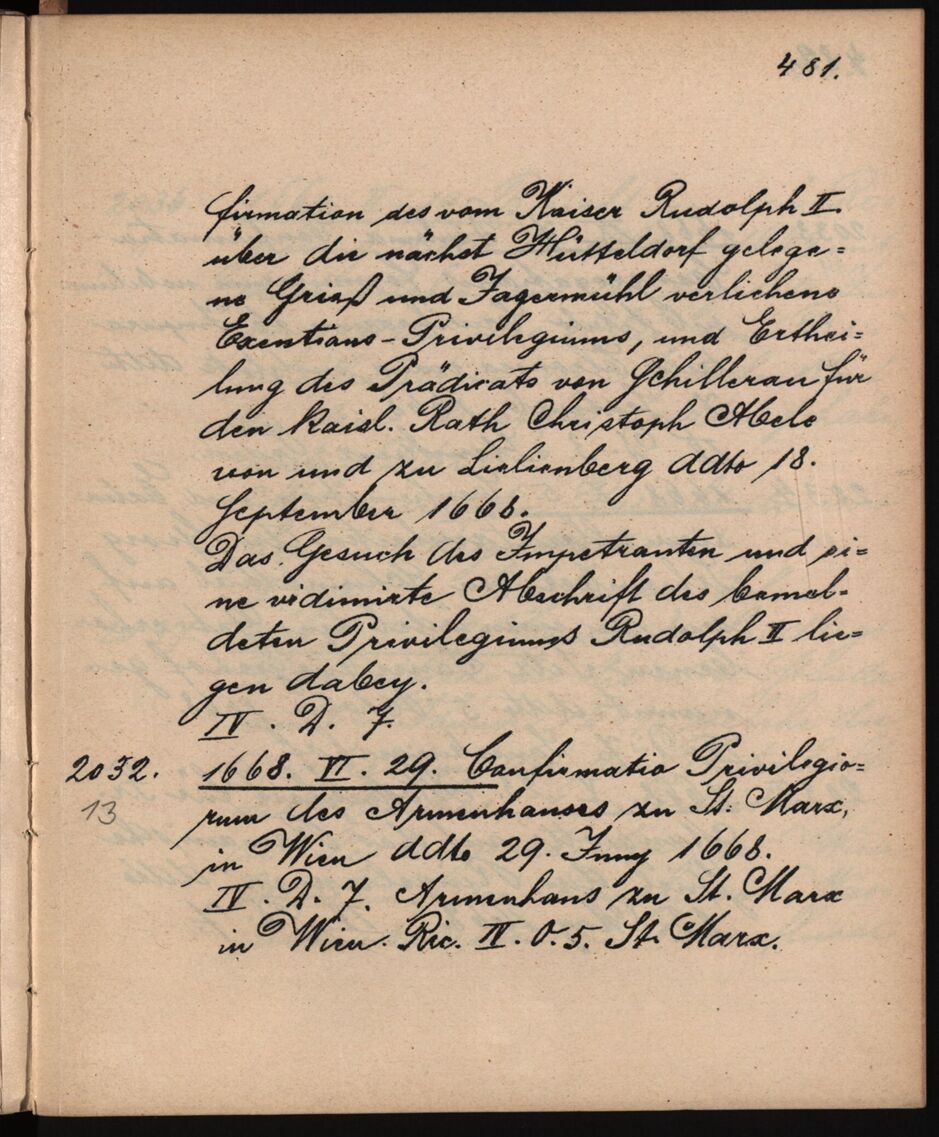 481.
firmation des vom Kaiser Rudolph II.
über die nächst Hütteldorf gelege=
ne Grieß und Jagermühl verliehene
Exentions-Privilegiums, und Erthei=
lung des Prädicats von Schillerau für
den kaisl. Rath Christoph Abele
von und zu Lielienberg ddto 18.
September 1668.
Das Gesuch des Impetranten und ei=
ne vidimirte Abschrift des bemel-
deten Privilegiums Rudolph II lie=
gen dabey.
IV. D. 7.
2032. 1668. VI. 29. Confirmatio Privilegio=
13 rum des Armenhauses zu St. Marx,
in Wien ddto 29. Juny 1668.
IV. D. 7. Armenhaus zu St. Marx
in Wien. Ric. IV. O. 5. St. Marx.